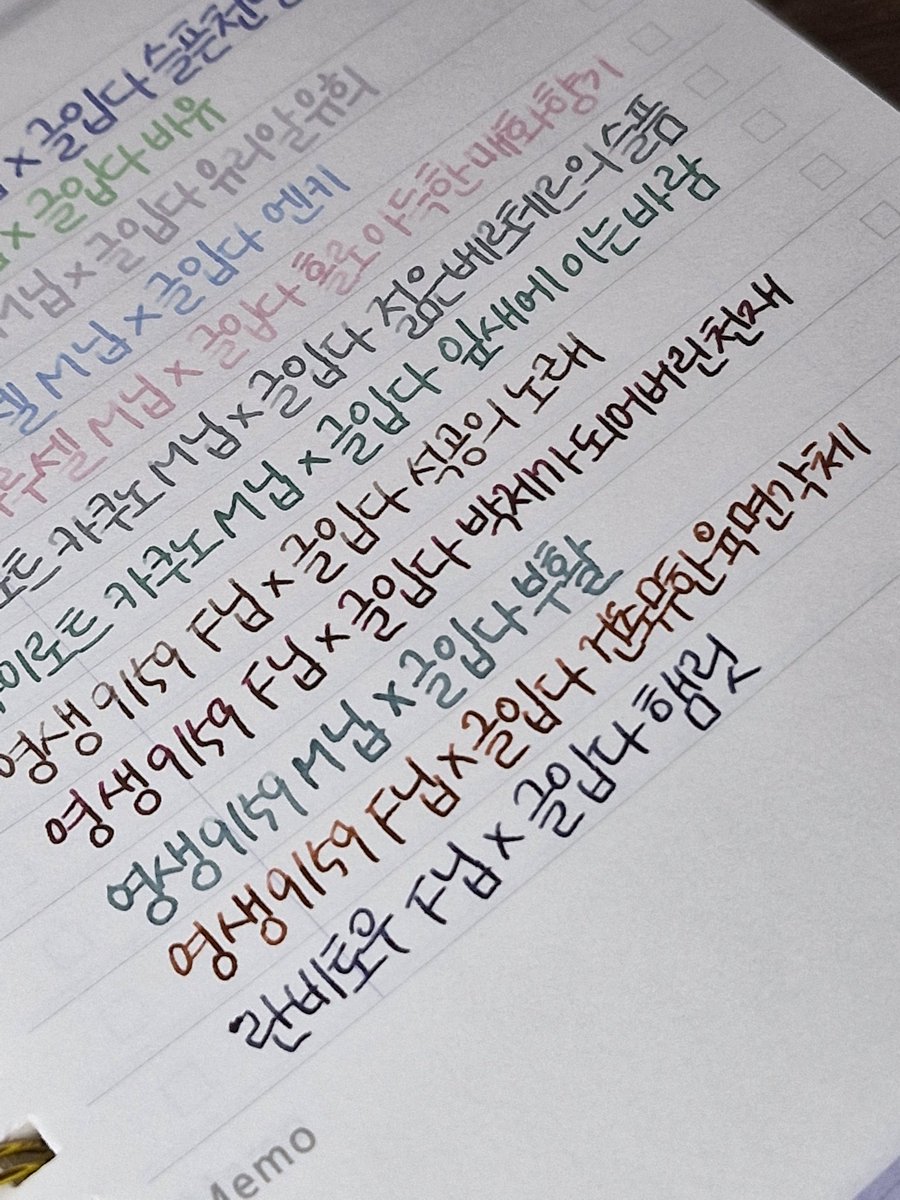 x 글입다 슬픈천명
x 글입다 바유
M닙 x 글입다 유리알 유희
셀 M닙 x 글입다 엔키
루셀 M닙 x 글입다 홀로 아득한 매화향기
로트 카쿠노 M닙 x 글입다 젊은베르테르의 슬픔
이로트 카쿠노 M닙 x 글입다 잎새에 이는 바람
영생 9159 F닙 x 글입다 석공의 노래
영생 9159 F닙 x 글입다 박제가 되어버린 천재
영생 9159 M닙 x 글입다 부활
영생 9159 F닙 x 글입다 건투무한육면각체
란비토우 F닙 x 글입다 햄릿
Memo